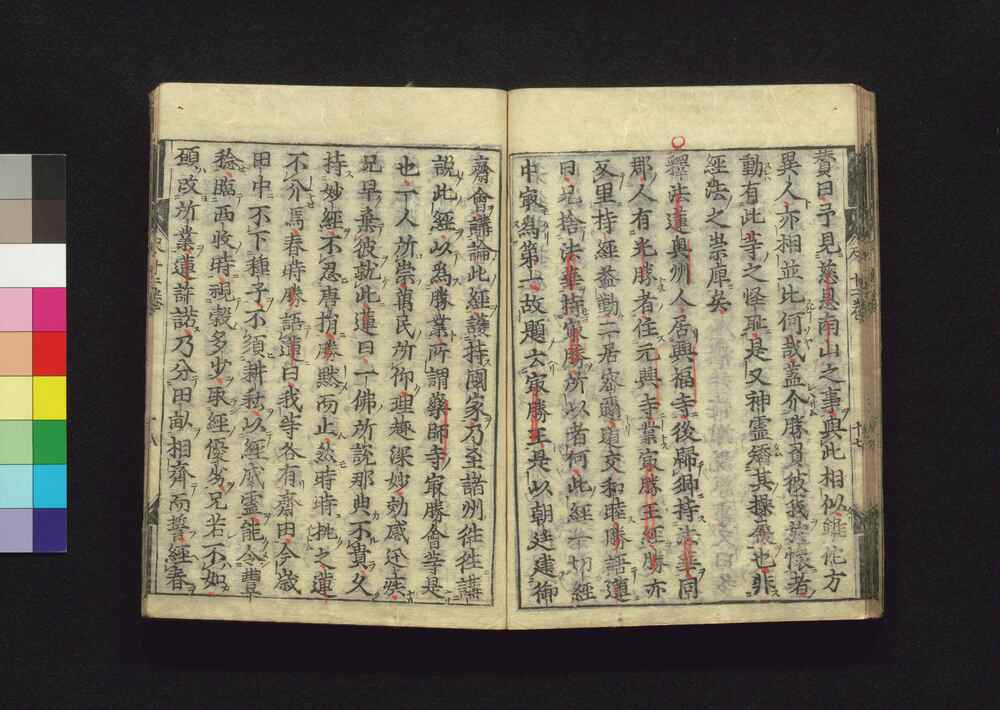 賛曰予見慈恩南山之事與此相似雖他方
異人亦相並比何哉蓋介勝負彼我於懷者
動有此等之怪耻是又神靈矯其操履也非
經法之崇庳矣
釋法蓮奥州人居興福寺後歸鄉持法華同
郡人有光勝者住元興寺業㝡勝王經勝亦
反里持經益勤二居密邇道交和睦勝語蓮
曰兄捨法華持㝡勝所以者何此經一切經
中㝡爲第一故題云㝡勝王是以朝廷建御
齋會講論此經護持國家乃至諸州徃徃講
説此經以爲勝業所謂藥師寺㝡勝會等是
也一人所崇萬民所仰理趣深妙効感迅疾
兄早棄彼就此蓮曰一佛所説那典不寶久
持妙經不忍唐捐勝默而止然時時挑之蓮
不介焉春時勝語蓮曰我等各有齋田今歲
田中不下種子不須耕耘以經威靈能令豐
稔臨西收時視穀多少取經優劣兄若不如
須改所業蓮許諾乃分田畝相齊而誓經春
十七
十八